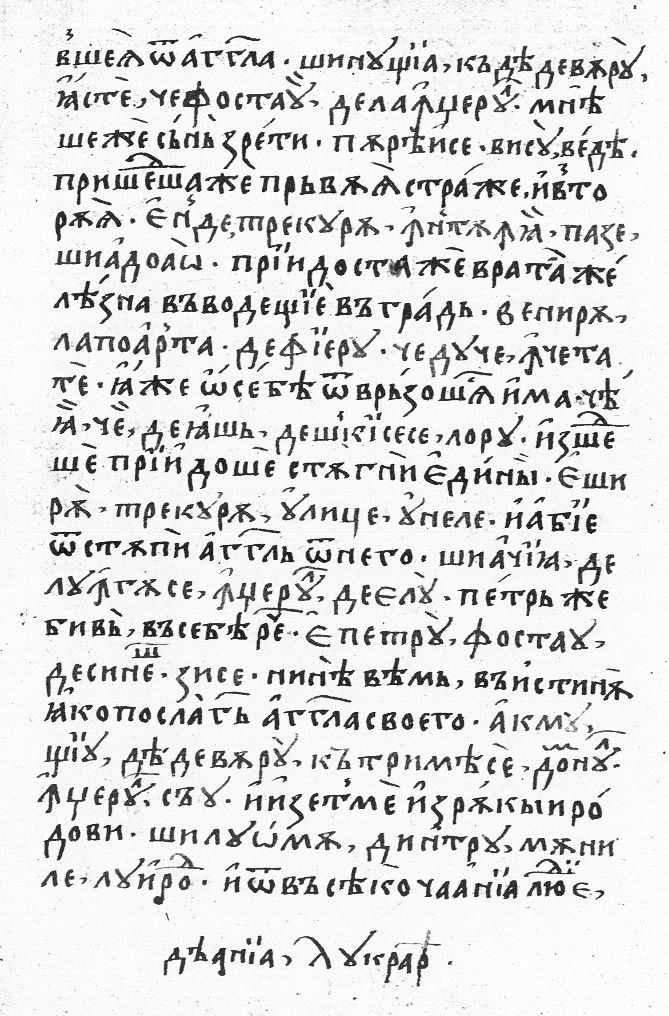 в҃шеѧ ѿ а҆гг҃ла · шинꙋщїа, къ дѣдевѧрꙋ,
ꙗ҆сте, че фостаꙋ, дела ꙟ҆џерꙋ҃л · мнѣ
шеже сънь зрети · пѧрѣи҆се · висꙋ, веде ·
пришеⷣша же прьвѧѧ страже, и҆ вто
рѧѧ · є҆нде, трекꙋрѧ, ꙟ҆нтѧꙗ҆, пазе,
шиа҆доаѡ · прїи҆доста же врата же
лѣзна въводещїе въ градь · венирѧ,
ла поа҆рта · де фїерꙋ · че дꙋче, ꙟ҆чета
те · ꙗ҆же ѡ҆ себѣ ѿврьзошⷭ҇ѧ и҆ма · чѣ
ꙗ҆, че, де ꙗ҆шь, дешкїсесе, лорꙋ · и҆зшеⷣ
ше прїи҆доше стѧгни є҆дины · є҆ши
рѧ, трекꙋрѧ, ꙋ҆лице, ꙋ҆неле · и҆ а҆бїе
ѿстѧпи а҆гг҃ль ѿ него · шиа҆чїꙗ, де
лꙋꙟ҆гѧсе, ꙟ҆џерꙋ҃л, де єлꙋ · петрь же
бивь, въ себѣ реⷱ · є҆ петрꙋ, фостаꙋ,
десинеⷲ · зисе · нинѣ вѣмь, въ и҆стинѧ
ꙗ҆ко посла г҃ь а҆гг҃ла своего · а҆кмꙋ,
щїꙋ, дѣдевѧрꙋ, къ тримѣсе, дⷨонꙋⷧ ·
ꙟ҆џерꙋ҃л, съꙋ · и҆ и҆зетме и҆з рѧкы иро
дови · ши лꙋѡ҆мѧ, дин҆трꙋ, мѧни
ле, лꙋи҆роⷣ · и҆ ѿ въсѣко чаа҆нїа люⷣїє,
дѣанїа, лꙋкрар ·